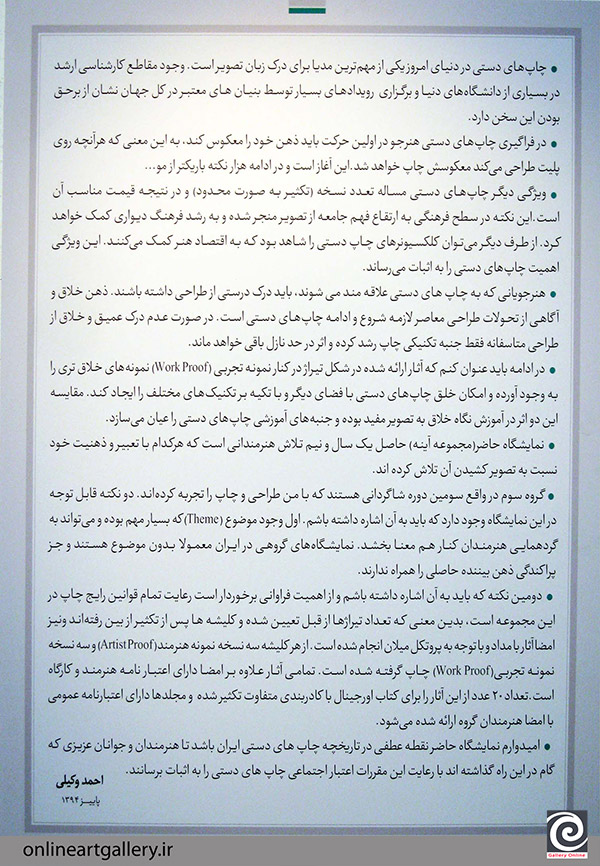 ● چاپ‌های دستی در دنیای امروز یکی از مهم‌ترین مدیا برای درک زبان تصویر است. وجود مقاطع کارشناسی ارشد
در بسیاری از دانشگاه‌های دنیا و برگزاری رویدادهای بسیار توسط بنیان های معتبر در کل جهان نشان از برحق
بودن این سخن دارد.
● در فراگیری چاپ‌های دستی هنرجو در اولین حرکت باید ذهن خود را معکوس کند، به این معنی که هرآنچه روی
پلیت طراحی می‌کند معکوسش چاپ خواهد شد. این آغاز است و در ادامه هزار نکته باریکتر از مو...
● ویژگی دیگر چاپ‌های دستی مساله تعدد نسخه (تکثیر به صورت محدود) و در نتیجه قیمت مناسب آن
است. این نکته در سطح فرهنگی به ارتفاع فهم جامعه از تصویر منجر شده و به رشد فرهنگ دیواری کمک خواهد
کرد. از طرف دیگر می‌توان کلکسیونرهای چاپ دستی را شاهد بود که به اقتصاد هنر کمک می‌کنند. این ویژگی
اهمیت چاپ‌های دستی را به اثبات می‌رساند.
● هنرجویانی که به چاپ های دستی علاقه مند می شوند، باید درک درستی از طراحی داشته باشند. ذهن خلاق و
آگاهی از تحولات طراحی معاصر لازمه شروع و ادامه چاپ‌های دستی است. در صورت عدم درک عمیق و خلاق از
طراحی متاسفانه فقط جنبه تکنیکی چاپ رشد کرده و اثر در حد نازل باقی خواهد ماند.
● در ادامه باید عنوان کنم که آثار ارائه شده در شکل تیراژ در کنار نمونه تجربی (Work Proof) نمونه‌های خلاق تری را
به وجود آورده و امکان خلق چاپ‌های دستی با فضای دیگر و با تکیه بر تکنیک‌های مختلف را ایجاد کند. مقایسه
این دو اثر در آموزش نگاه خلاق به تصویر مفید بوده و جنبه‌های آموزشی چاپ‌های دستی را عیان می‌سازد.
● نمایشگاه حاضر(مجموعه آینه) حاصل یک سال و نیم تلاش هنرمندانی است که هرکدام با تعبیر و ذهنیت خود
نسبت به تصویر کشیدن آن تلاش کرده اند.
● گروه سوم در واقع سومین دوره شاگردانی هستند که با من طراحی و چاپ را تجربه کرده‌اند. دو نکته قابل توجه
در این نمایشگاه وجود دارد که باید به آن اشاره داشته باشم. اول وجود موضوع (Theme) که بسیار مهم بوده و می‌تواند به
گردهمایی هنرمندان کنار هم معنا بخشد. نمایشگاه‌های گروهی در ایران معمولا بدون موضوع هستند و جز
پراکندگی ذهن بیننده حاصلی را همراه ندارند.
● دومین نکته که باید به آن اشاره داشته باشم و از اهمیت فراوانی برخوردار است رعایت تمام قوانین رایج چاپ در
این مجموعه است، بدین معنی که تعداد تیراژها از قبل تعیین شده و کلیشه ها پس از تکثیر از بین رفته‌اند ونیز
امضا آثار با مداد و با توجه به پروتکل میلان انجام شده است. از هر کلیشه سه نسخه نمونه هنرمند (Artist Proof) و سه نسخه
نمونه تجربی (Work Proof) چاپ گرفته شده است. تمامی آثار علاوه بر امضا دارای اعتبار نامه هنرمند و کارگاه
است. تعداد ۲۰ عدد از این آثار را برای کتاب اورجینال با کادربندی متفاوت تکثیر شده و مجلدها دارای اعتبارنامه عمومی
با امضا هنرمندان گروه ارائه شده می‌شود.
● امیدوارم نمایشگاه حاضر نقطه عطفی در تاریخچه چاپ های دستی ایران باشد تا هنرمندان و جوانان عزیزی که
گام در این راه گذاشته اند با رعایت این مقررات اعتبار اجتماعی چاپ های دستی را به اثبات برسانند.
احمد وکیلی
پاییز ۱۳۹۴
onlineartgallery.ir
Gallery Online